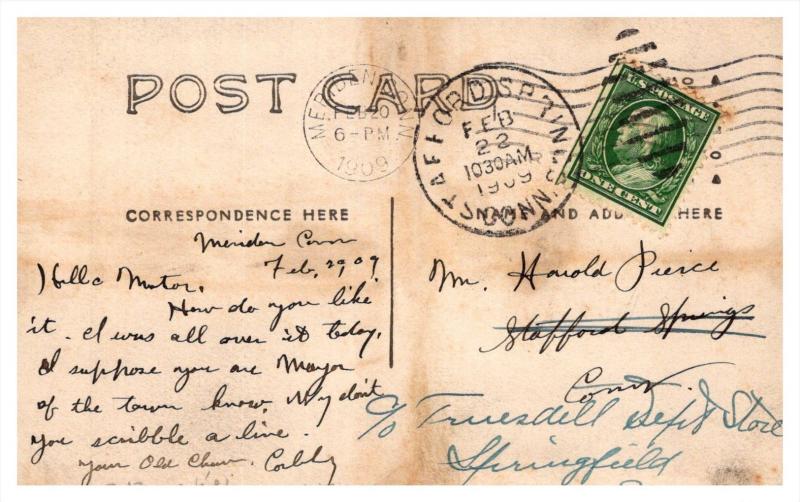 POST CARD
MERIDEN CONN.
FEB 20
6-PM
1909
STAFFORD SPRINGS CONN.
FEB
22
1030AM
1909
U.S. POSTAGE
ONE CENT
CORRESPONDENCE HERE
NAME AND ADDRESS HERE
Meriden Conn
Feb, 20, 09
Hello
How do you like
it. I was all over it today.
I suppose you are Mayor
of the town know. Why don't
you scribble a line.
Your Old Chum. 
Mr. Harold Pierce
Stafford Springs
Conn.
c/o Truesdell Dept Store
Springfield